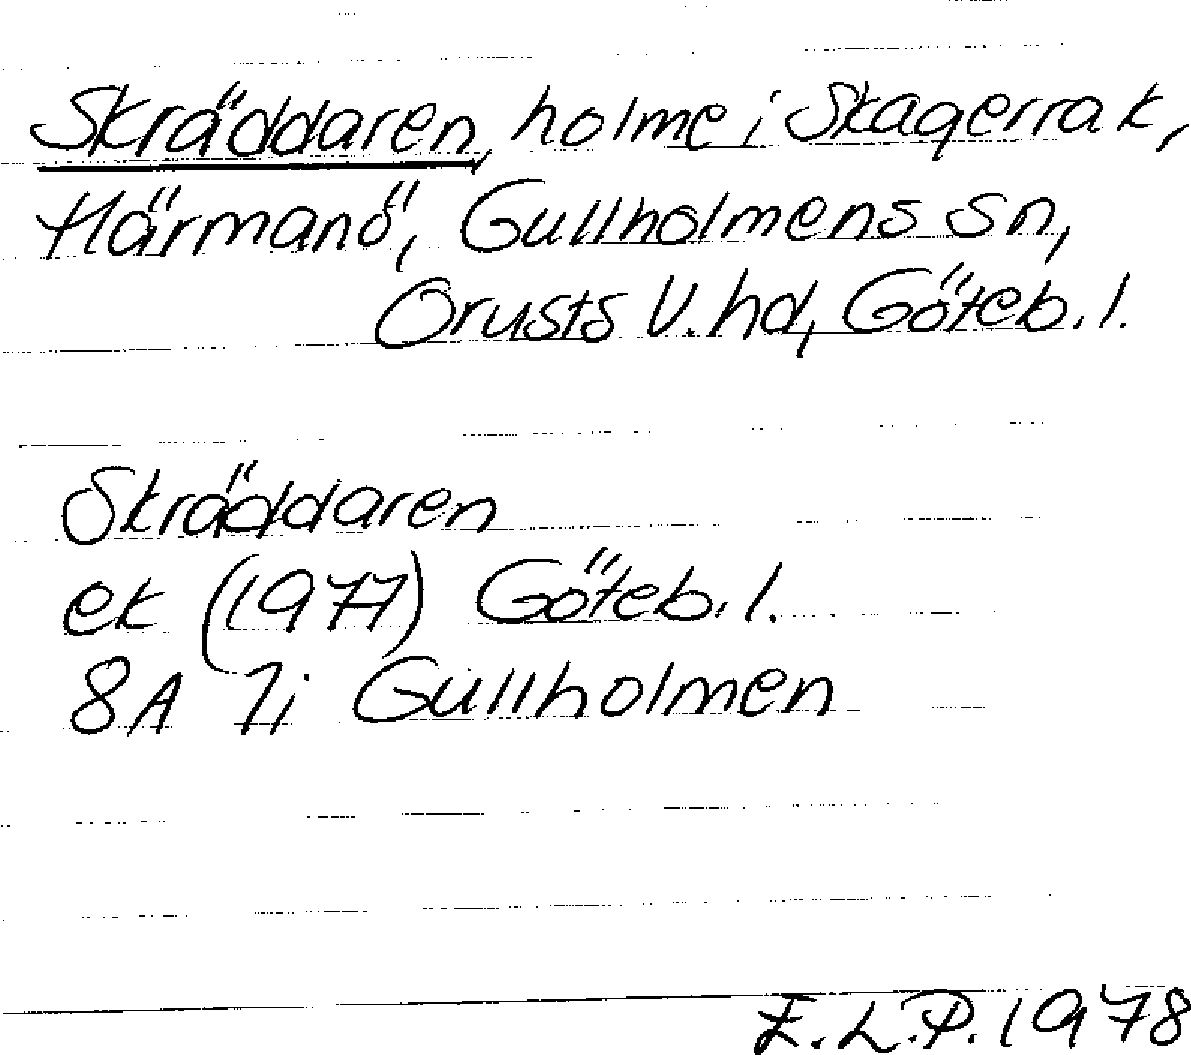 Skräddaren, holme i Skagerrak,
Härmanö, Gullholmens sn,
Orusts V. hd, Göteb. l.
Skräddaren
ek (1977) Göteb. l.
8A 7i Gullholmen
E.L.P. 1978